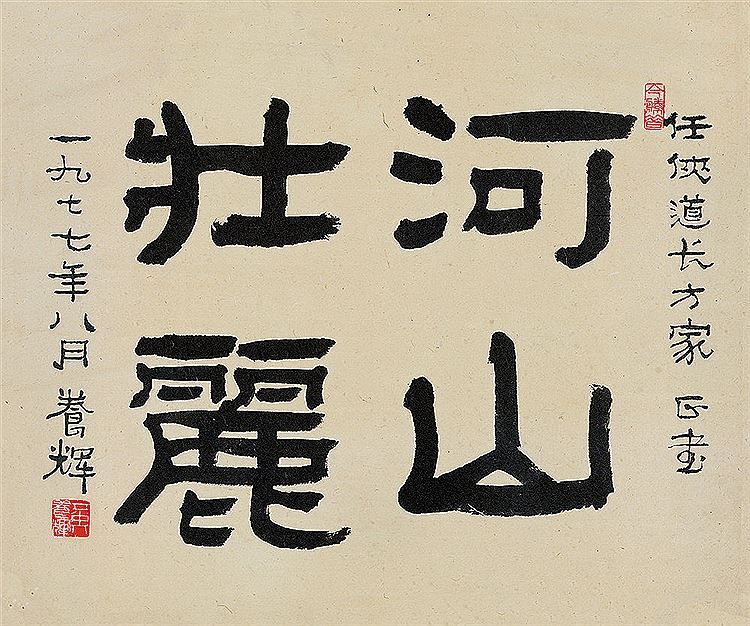 今勝昔
任俠道长方家 正書
河山
壯麗
一九七七年八月 養輝